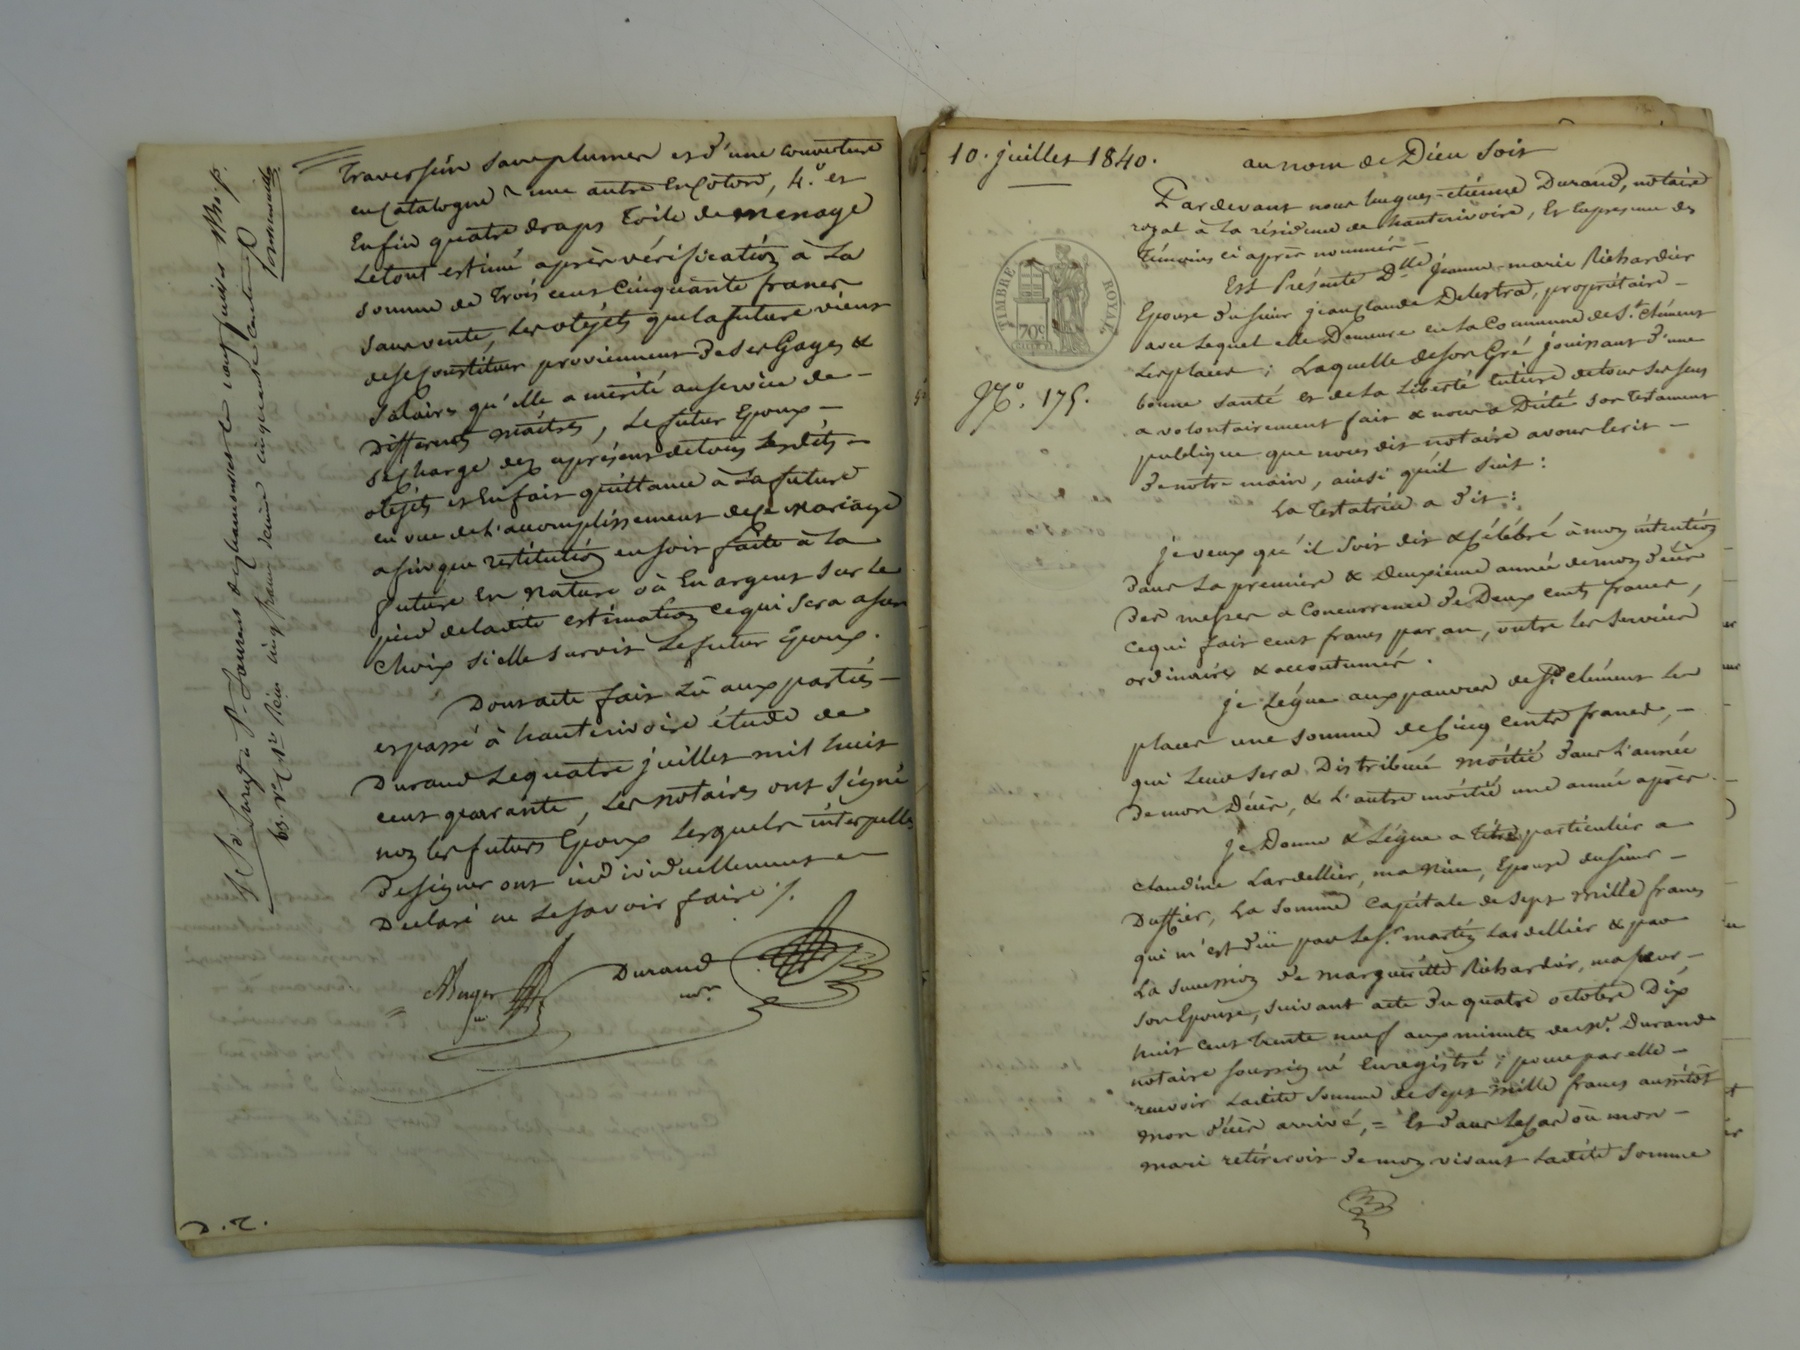 traversin sans plumes et d'une couverture
en catalogne & une autre en coton, 4.° et
Enfin quatre draps toile de ménage
Le tout estimé après vérification à La
somme de trois cent cinquante francs
sans vente, Les objets que la future vient
de se constituer proviennent de ses Gages &
salaires qu'elle a mérité au service de -
Differents maitres, Le futur Epoux -
se charge dez aprésent de tous Lesdits -
objets et En fait quittance à La future
en vue de L'accomplissement de ce mariage
afin que restitution en soit faite à La
future En nature où En argent sur Le
pied de ladite estimation ce qui sera a son
choix si elle survit Le futur Epoux.
Dont acte fait Lû aux partiés -
et passé à hauterivoire étude de
Durand Le quatre juillet mil huit
cent quarante, Les notaires ont signé
non les futurs Epoux Lesquels interpellés
de signer ont individuellement
Declaré ne Le savoir faire ./.
Durand
D. 2.
10. juillet 1840.
au nom de Dieu soit
Pardevant nous hugues-etienne Durand, notaire
royal à La résidence de hauterivoire, En La présence des
témoins ci après nommés -
Est Présente D.lle jeanne-marie Richardier
Epouse du sieur jean claude Delestra, propriétaire -
avec Lequel elle Demeure en La Commune de S.t Clément
Les places; Laquelle de son Gré jouissant d'une
bonne santé et de La Liberté entière de tous ses sens
a volontairement fait & nous a Dicté son testament
publique que nous dit notaire avons Ecrit -
de notre main, ainsi qu'il suit:
La testatrice a dit:
TIMBRE ROYAL
70c
N.° 175.
je veux qu'il soit dit & célébré à mon intention
dans La premiere & Deuxieme année de mon décès
des messes a Concurrence de Deux cents francs,
ce qui fait cent francs par an, outre Les services
ordinaires & accoutumés.
je Légue aux pauvres de S.t Clément Les
places une somme de Cinq cents francs, -
qui Leur sera Distribué moitié dans L'année
de mon Décès, & L'autre moitié une année après.
je Donne & Légue a titre particulier a
claudine Lardellier, ma Niece, Epouse du sieur -
Duffier, La somme capitale de sept mille francs
qui m'est dûe par Le S.r martin Lardellier & par
La succession de margueritte Richardier, ma sœur, -
son Epouse, suivant acte du quatre octobre Dix
huit cent trente neuf aux minutes de M.e Durand
notaire soussigné Enregistré; pour par elle -
recevoir Ladite somme de sept mille francs aussitôt
mon décès arrivé, = Et dans Le Cas où mon -
mari retirerait de mon vivant Ladite somme